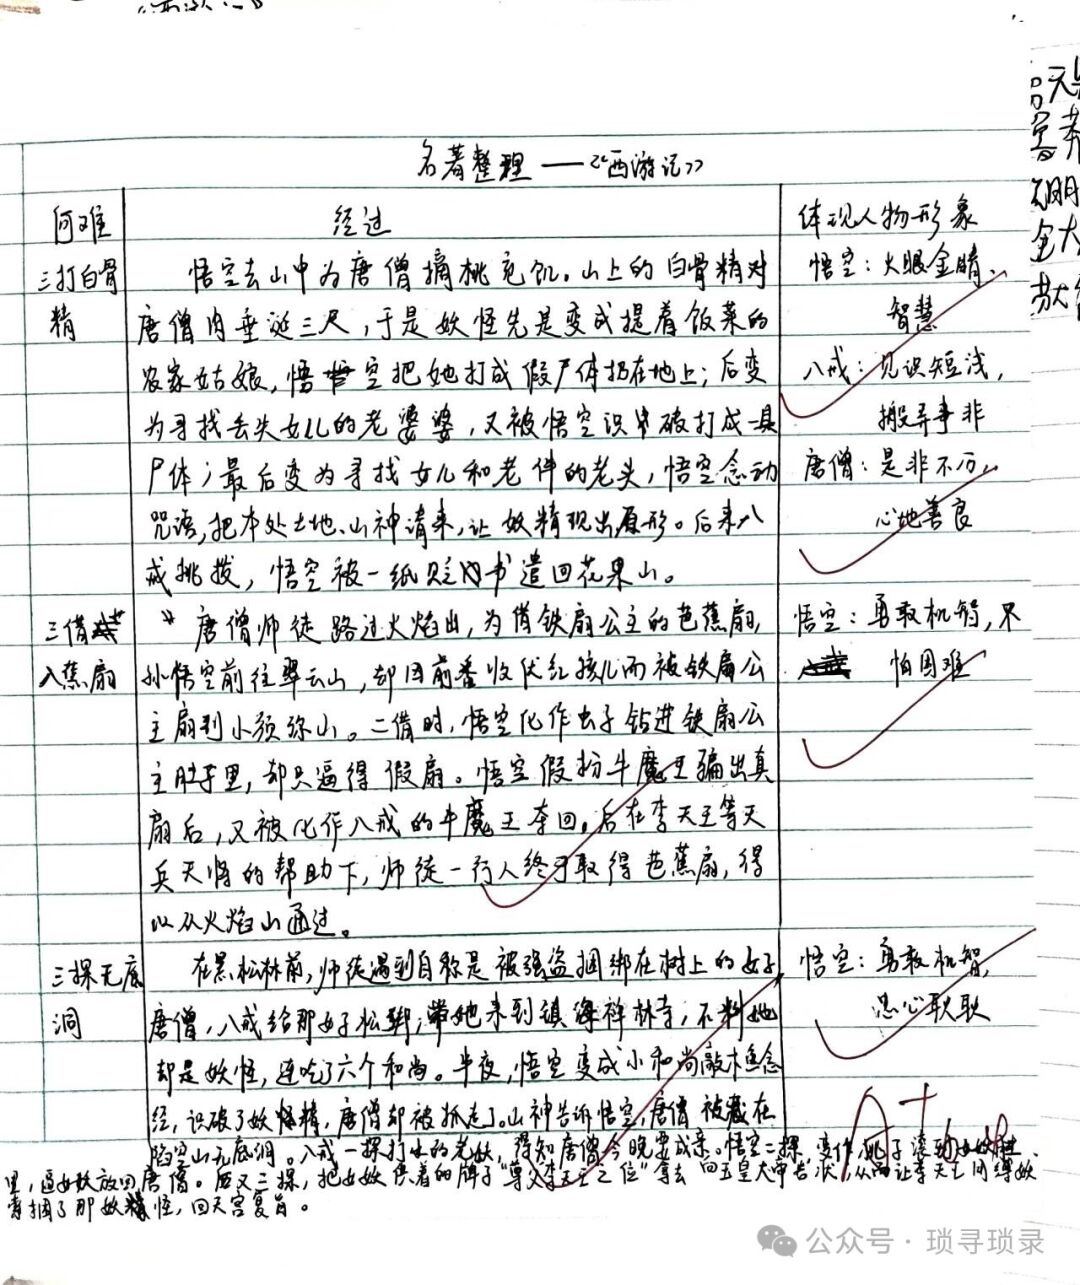 《西游记》
名著整理——《西游记》
何难
经过
体现人物形象
三打白骨
精
悟空去山中为唐僧摘桃充饥。山上的白骨精对
唐僧肉垂涎三尺，于是妖怪先是变成提着饭菜的
农家姑娘，悟空把她打成假尸体扔在地上；后变
为寻找丢失女儿的老婆婆，又被悟空识破打成一具
尸体；最后变为寻找女儿和老伴的老头，悟空念动
咒语，把本处土地、山神请来，让妖精现出原形。后来八
戒挑拨，悟空被一纸贬书遣回花果山。
悟空：火眼金睛、
智慧
八戒：见识短浅，
搬弄事非
唐僧：是非不分，
心地善良
三借
八蕉扇
唐僧师徒路过火焰山，为借铁扇公主的芭蕉扇，
孙悟空前往翠云山，却因前番收伏红孩儿而被铁扇公
主扇到小须弥山。二借时，悟空化作虫子钻进铁扇公
主肚子里，却只逼得假扇。悟空假扮牛魔王骗出真
扇后，又被化作八戒的牛魔王夺回。后在李天王等天
兵天将的帮助下，师徒一行人终于取得芭蕉扇，得
以从火焰山通过。
悟空：勇敢机智，不
怕困难
三探无底
洞
在黑松林前，师徒遇到自称是被强盗捆绑在树上的女子
唐僧，八戒给那女子松绑，带她来到镇海禅林寺，不料她
却是妖怪，连吃了六个和尚。半夜，悟空变成小和尚敲木鱼念
经，识破了妖精，唐僧却被抓走了。山神告诉悟空，唐僧被藏在
陷空山无底洞。八戒一探打水的老妖，得知唐僧今晚要成亲。悟空二探，变作桃子滚到女妖肚
里，逼女妖放回唐僧。后又三探，把女妖供着的牌子"尊父李天王之位"拿去向玉皇大帝告状，从而让李天王闭缚妖
索捆了那妖精怪，回天宫复旨。
悟空：勇敢机智，
忠心耿耿
A+
公众号·琐寻琐录